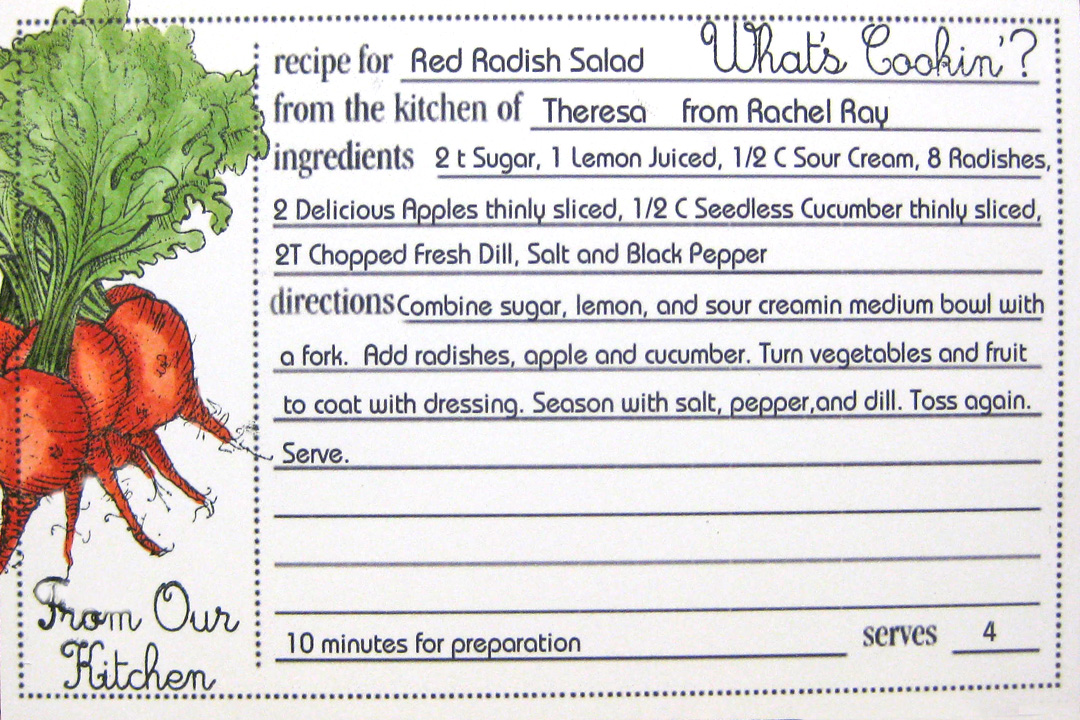 What's Cookin'?
recipe for Red Radish Salad
from the kitchen of Theresa from Rachel Ray
ingredients 2 t Sugar, 1 Lemon Juiced, 1/2 C Sour Cream, 8 Radishes,
2 Delicious Apples thinly sliced, 1/2 C Seedless Cucumber thinly sliced,
2T Chopped Fresh Dill, Salt and Black Pepper
directions Combine sugar, lemon, and sour creamin medium bowl with
a fork. Add radishes, apple and cucumber. Turn vegetables and fruit
to coat with dressing. Season with salt, pepper,and dill. Toss again.
Serve.
10 minutes for preparation serves 4
From Our
Kitchen